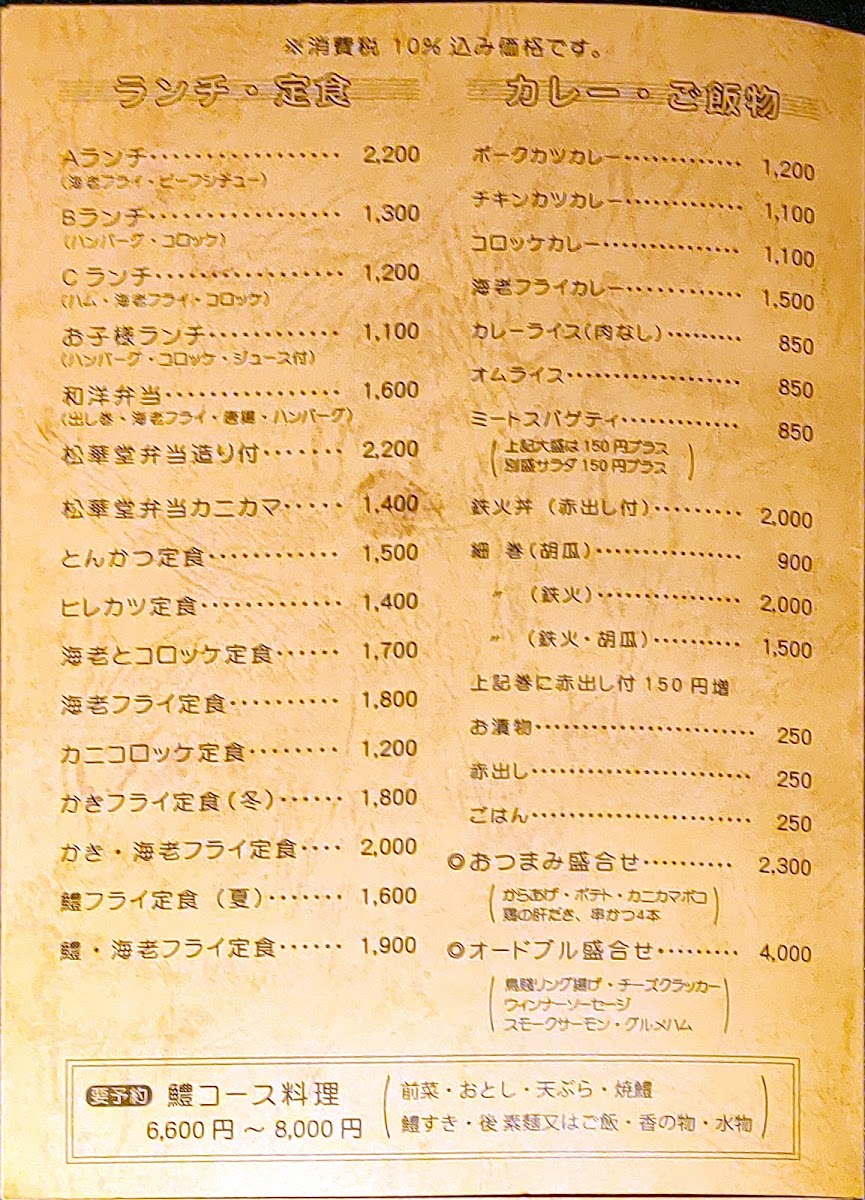 ※消費税 10% 込み価格です。
ランチ・定食
Aランチ・・・・・・・・・・・・・・・・・ 2,200
(海老フライ・ビーフシチュー)
Bランチ・・・・・・・・・・・・・・・・・ 1,300
(ハンバーグ・コロッケ)
Cランチ・・・・・・・・・・・・・・・・・ 1,200
(ハム・海老フライ・コロッケ)
お子様ランチ・・・・・・・・・・・・ 1,100
(ハンバーグ・コロッケ・ジュース付)
和洋弁当・・・・・・・・・・・・・・・・ 1,600
(出し巻・海老フライ・唐揚・ハンバーグ)
松華堂弁当造り付・・・・・・・ 2,200
松華堂弁当カニカマ・・・・・ 1,400
とんかつ定食・・・・・・・・・・・・ 1,500
ヒレカツ定食・・・・・・・・・・・・ 1,400
海老とコロッケ定食・・・・・・ 1,700
海老フライ定食・・・・・・・・・・ 1,800
カニコロッケ定食・・・・・・・・ 1,200
かきフライ定食(冬)・・・・・・ 1,800
かき・海老フライ定食・・・・ 2,000
鱧フライ定食(夏)・・・・・・・ 1,600
鱧・海老フライ定食・・・・・・ 1,900
カレー・ご飯物
ポークカツカレー・・・・・・・・・・・・ 1,200
チキンカツカレー・・・・・・・・・・・・ 1,100
コロッケカレー・・・・・・・・・・・・・・ 1,100
海老フライカレー・・・・・・・・・・・・ 1,500
カレーライス(肉なし)・・・・・・・・ 850
オムライス・・・・・・・・・・・・・・・・・・ 850
ミートスパゲティ・・・・・・・・・・・・ 850
(上記大盛は150円プラス
別盛サラダ150円プラス)
鉄火丼(赤出し付)・・・・・・・・・ 2,000
細巻(胡瓜)・・・・・・・・・・・・・・・ 900
〃(鉄火)・・・・・・・・・・・・・・・ 2,000
〃(鉄火・胡瓜)・・・・・・・・・ 1,500
上記巻に赤出し付150円増
お漬物・・・・・・・・・・・・・・・・・・・・・・ 250
赤出し・・・・・・・・・・・・・・・・・・・・・・ 250
ごはん・・・・・・・・・・・・・・・・・・・・・・ 250
◎おつまみ盛合せ・・・・・・・・・ 2,300
(からあげ・ポテト・カニカマボコ
鶏の肝だき、串かつ4本)
◎オードブル盛合せ・・・・・・・・ 4,000
(リング揚げ・チーズクラッカー
ウィンナーソーセージ
スモークサーモン・グルメハム)
要予約 鱧コース料理
6,600円〜8,000円
(前菜・おとし・天ぷら・焼鱧
鱧すき・後 素麺又はご飯・香の物・水物)